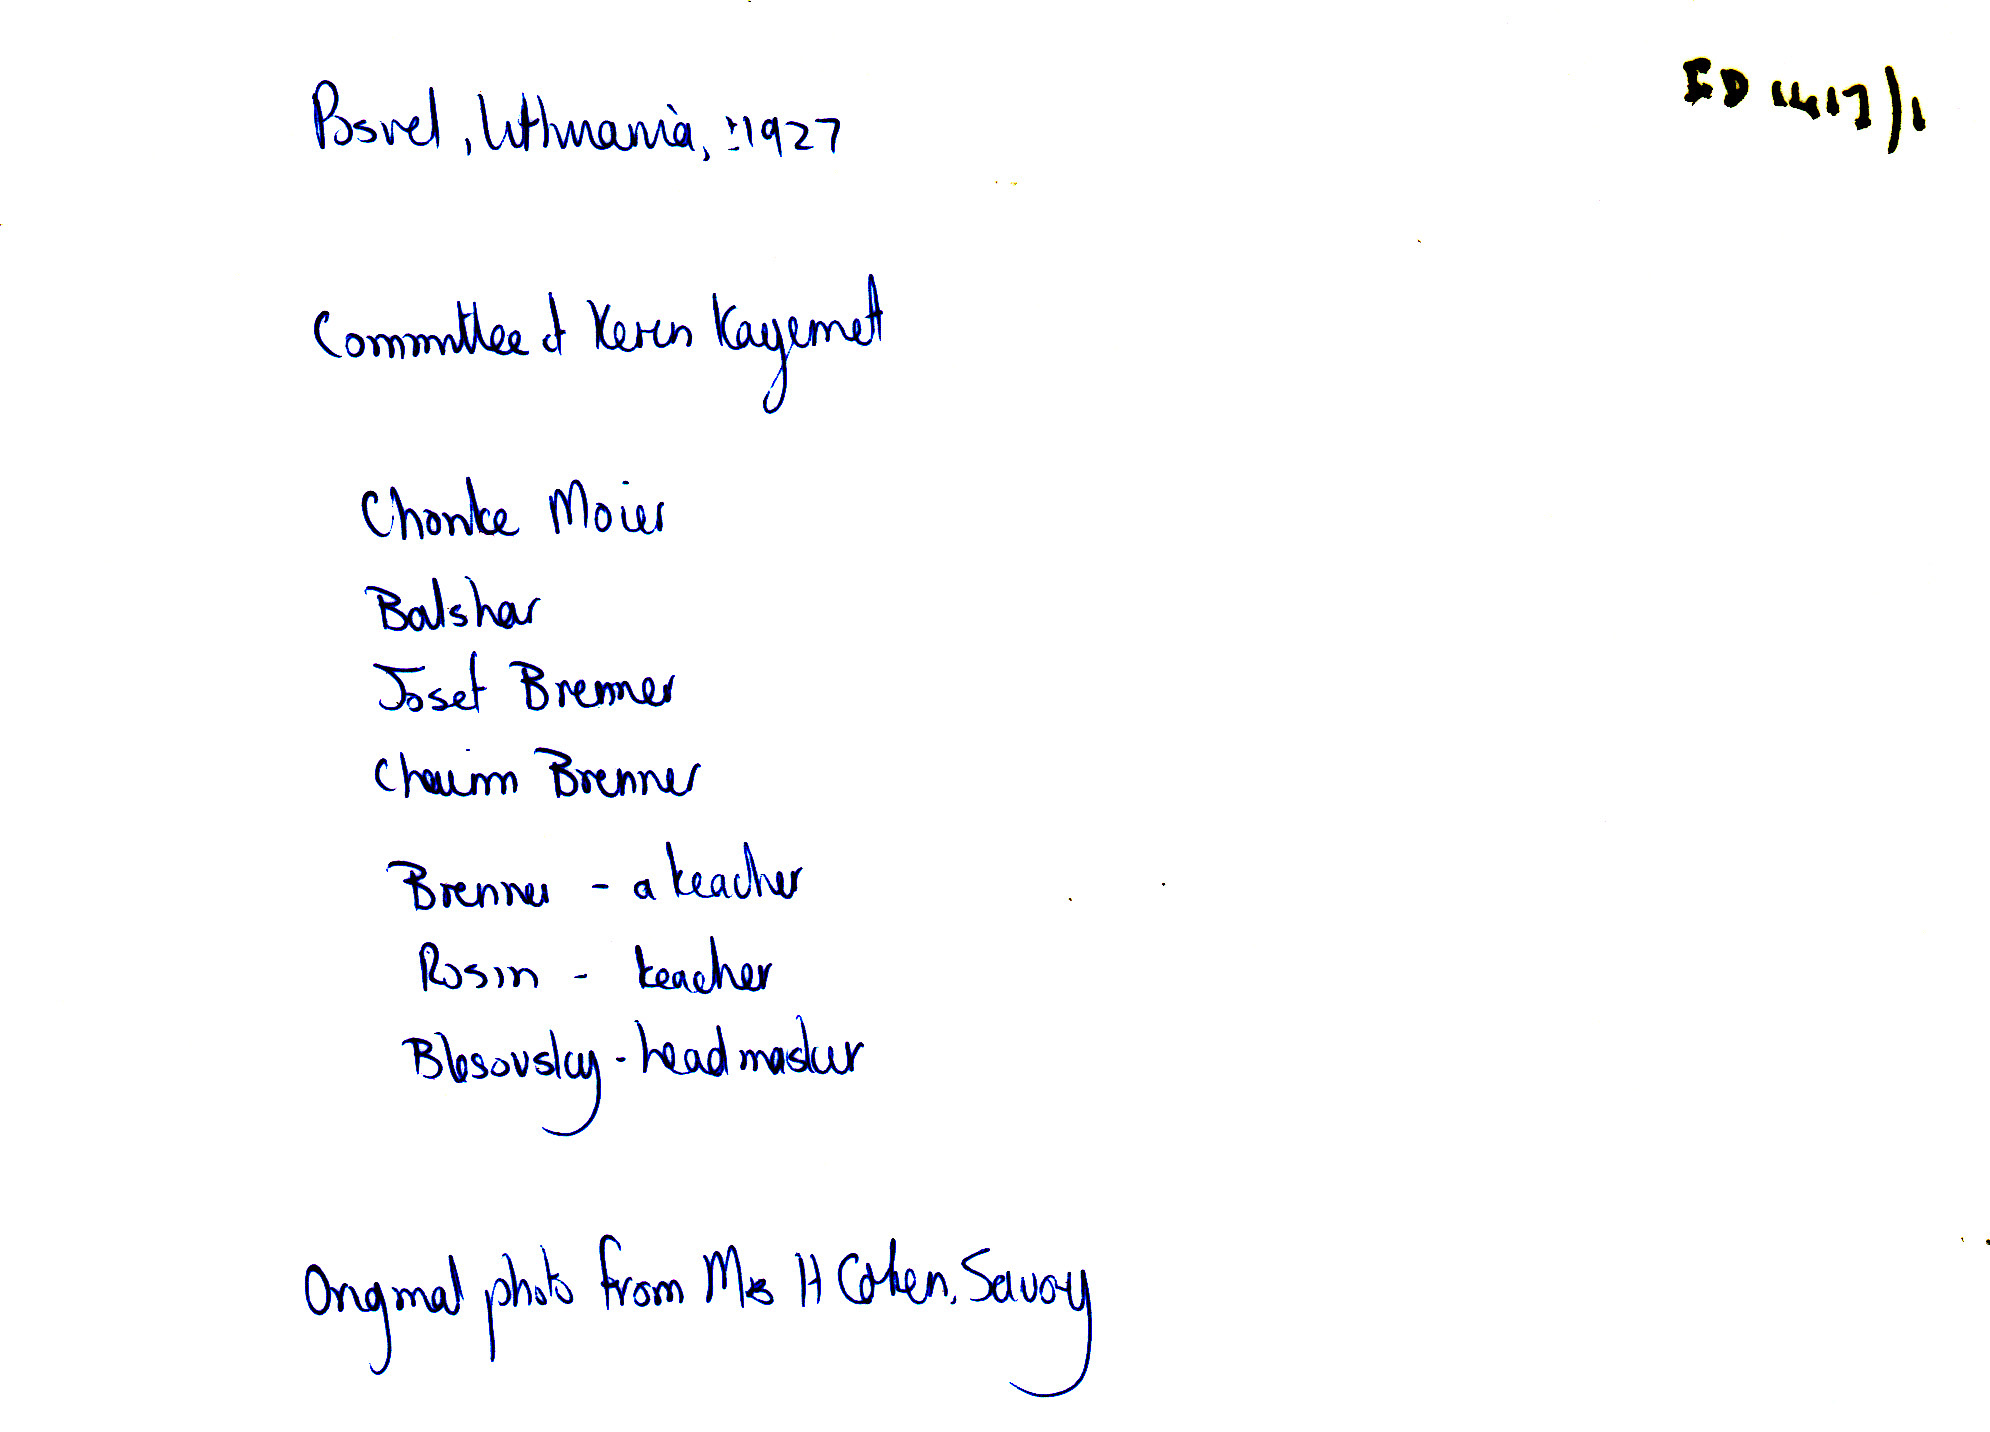 Posvel, Lithuania, ±1927
ED 1417/1
Committee of Keren Kayemett
Chonke Moier
Balshar
Josef Brenner
Chaim Brenner
Brenner - a teacher
Rosin - teacher
Blesovsky - headmaster
Original photo from Mrs H Cohen, Savoy